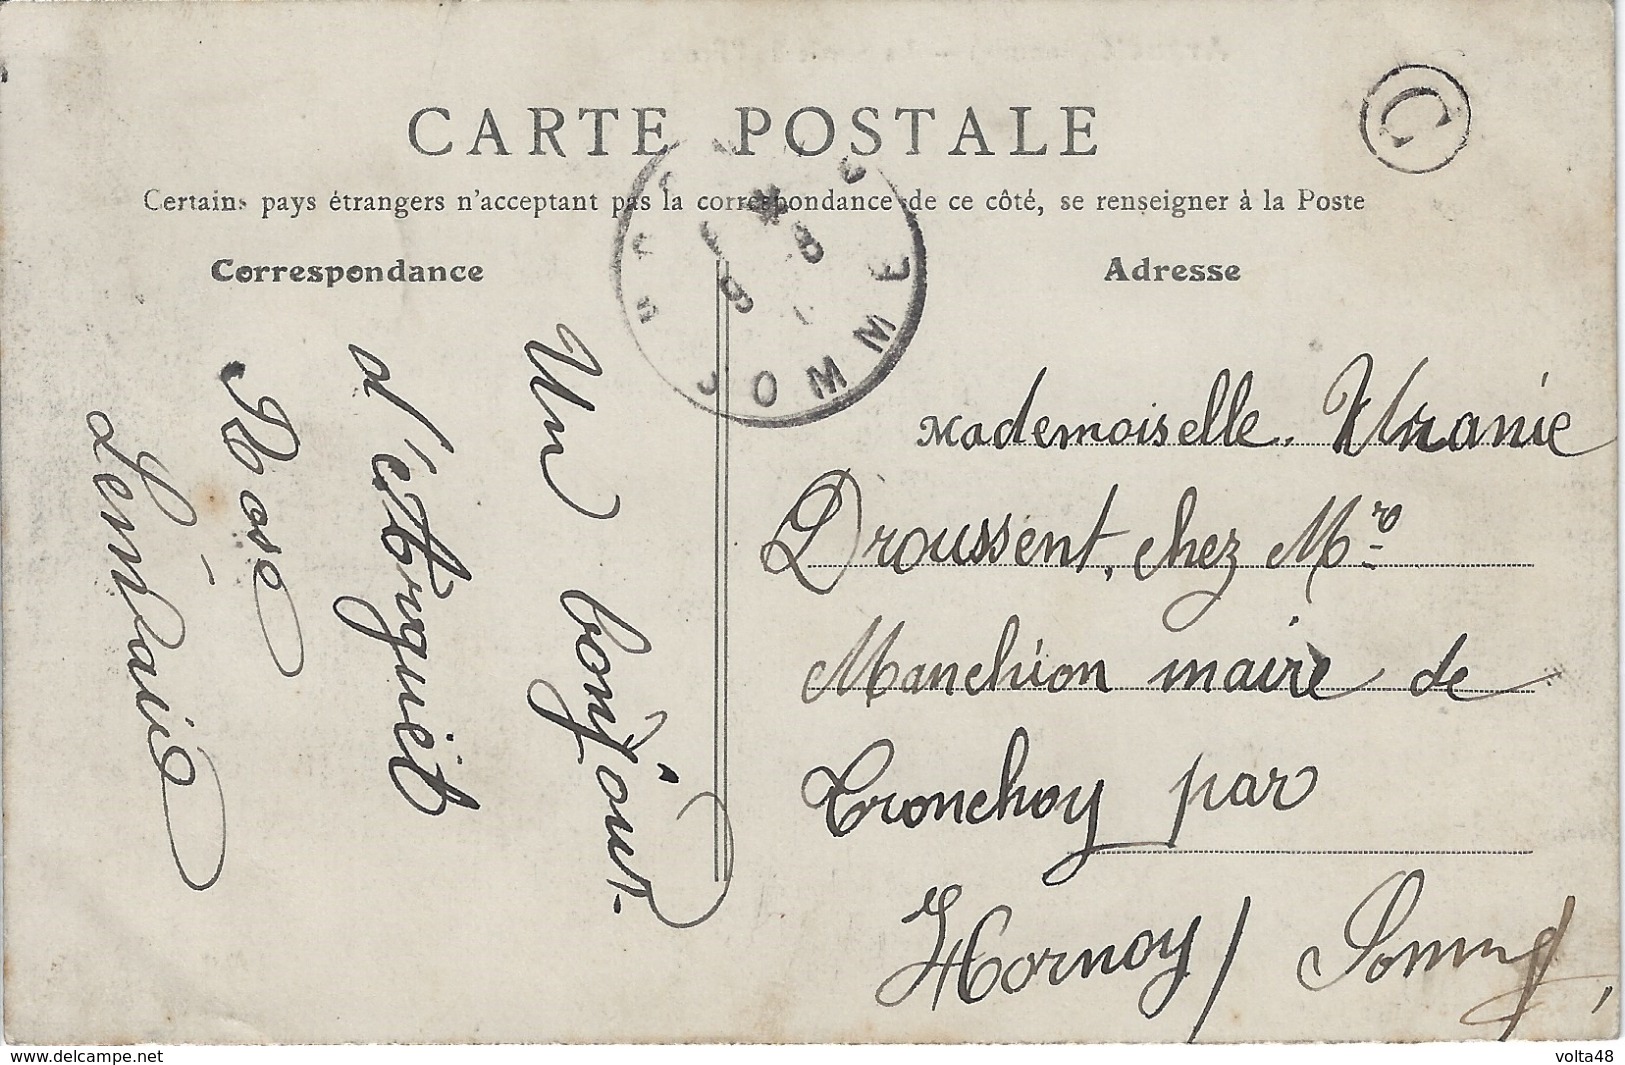 CARTE POSTALE
C
Certains pays étrangers n'acceptant pas la correspondance de ce côté, se renseigner à la Poste
Correspondance
Adresse
SOMME
Un bonjour
d'étArguët
Rose
Lemaire
Mademoiselle. Uranie
Droussent, chez Mr
Manchion maire de
Tronchoy par
Hornoy / Somme,
www.delcampe.net
volta48